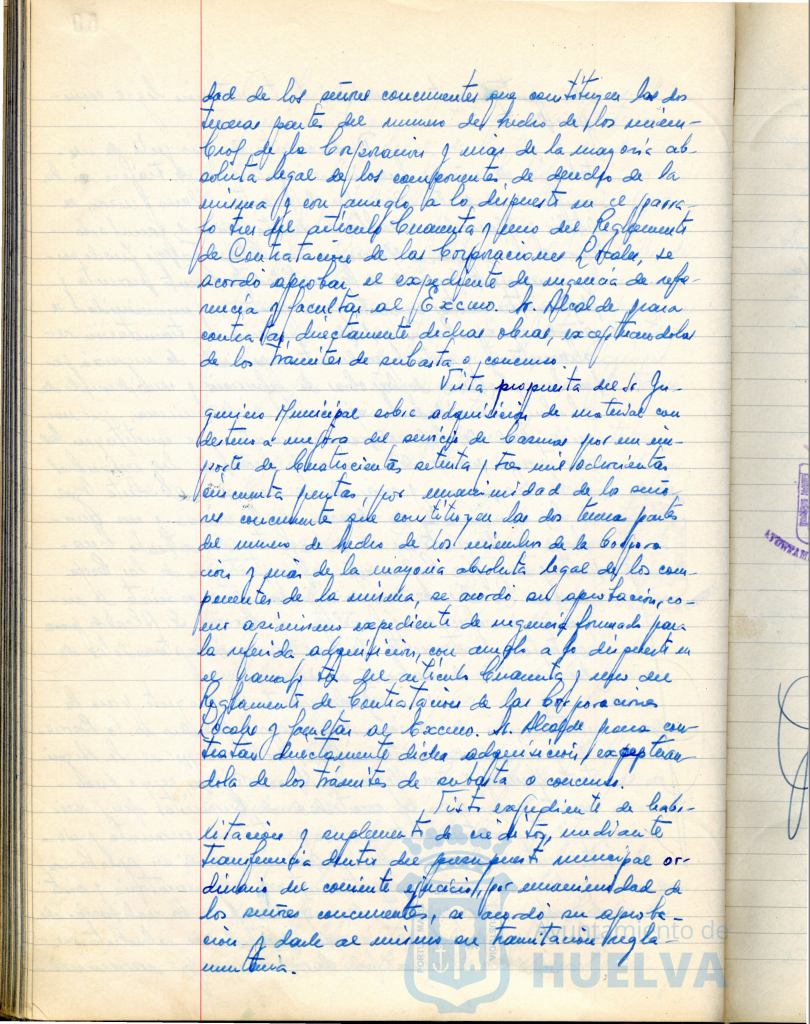 dad de los señores concurrentes que constituyen las dos
terceras partes del numero de hecho de los miem-
bros de la Corporación y más de la mayoría ab-
soluta legal de los componentes de derecho de la
misma y con arreglo a lo dispuesto en el párra-
fo tres del artículo Cuarenta y uno del Reglamento
de Contratación de las Corporaciones Locales, se
acordó aprobar el expediente de urgencia de refe-
rencia y facultar al Excmo. Sr. Alcalde para
contratar directamente dichas obras, exceptuandolas
de los trámites de subasta o concurso.
Vista propuesta del Sr. In-
geniero Municipal sobre adquisición de material con
destino a mejora del servicio de por un im-
porte de Cuatrocientas setenta y tres mil
cincuenta pesetas, por unanimidad de los seño-
res concurrentes que constituyen las dos terceras partes
del numero de hecho de los miembros de la Corpora
ción y más de la mayoría absoluta legal de los com-
ponentes de la misma, se acordó su aprobación, co-
mo asimismo expediente de urgencia formado para
la referida adquisición, con arreglo a lo dispuesto en
el párrafo tres del artículo Cuarenta y uno del
Reglamento de Contratación de las Corporaciones
Locales y facultar al Excmo. Sr. Alcalde para con
tratar directamente dicha adquisición, exceptuan
dola de los trámites de subasta o concurso.
Visto expediente de habi-
litación y suplemento de créditos, mediante
transferencia dentro del presupuesto municipal or-
dinario del corriente ejercicio, por unanimidad de
los señores concurrentes, se acordó su aproba-
ción y darle al mismo su tramitación regla-
mentaria.
Ayuntamiento de
HUELVA